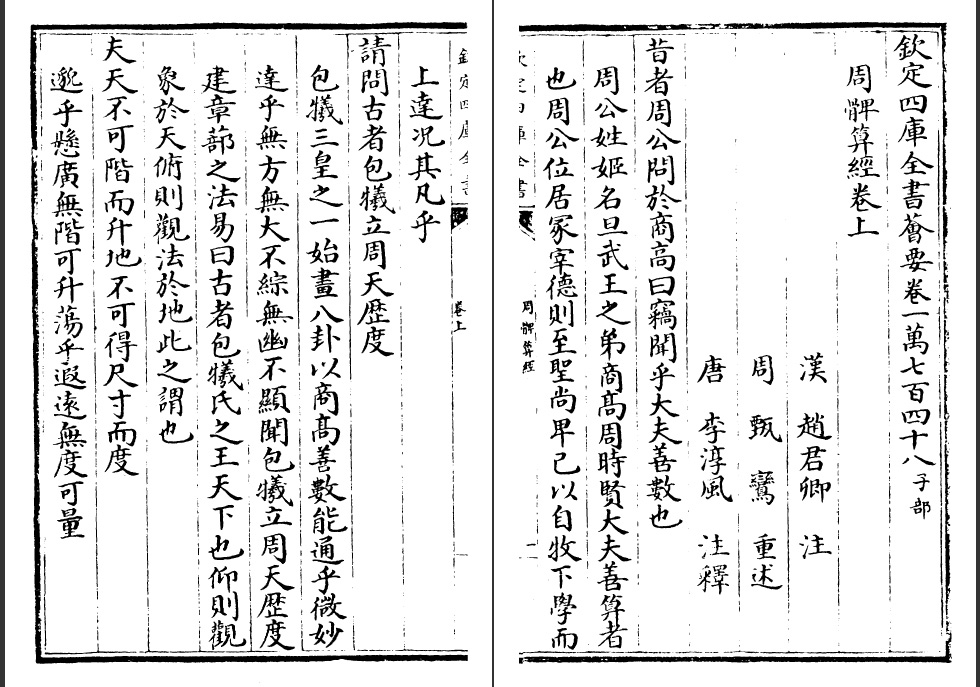 欽定四庫全書薈要卷一萬七百四十八子部
周髀算經卷上
漢 趙君卿 注
周 甄鸞 重述
唐 李淳風 注釋
昔者周公問於商高曰竊聞乎大夫善數也
周公姓姬名旦武王之弟商高周時賢大夫善算者
也周公位居冢宰德則至聖尚卑己以自牧下學而
欽定四庫全書
周髀算經
一
欽定四庫全書
卷上
上達况其凡乎
請問古者包犧立周天歴度
包犧三皇之一始畫八卦以商高善數能通乎微妙
達乎無方無大不綜無幽不顯聞包犧立周天歴度
建章蔀之法易曰古者包犧氏之王天下也仰則觀
象於天俯則觀法於地此之謂也
夫天不可階而升地不可得尺寸而度
邈乎懸廣無階可升蕩乎遐遠無度可量